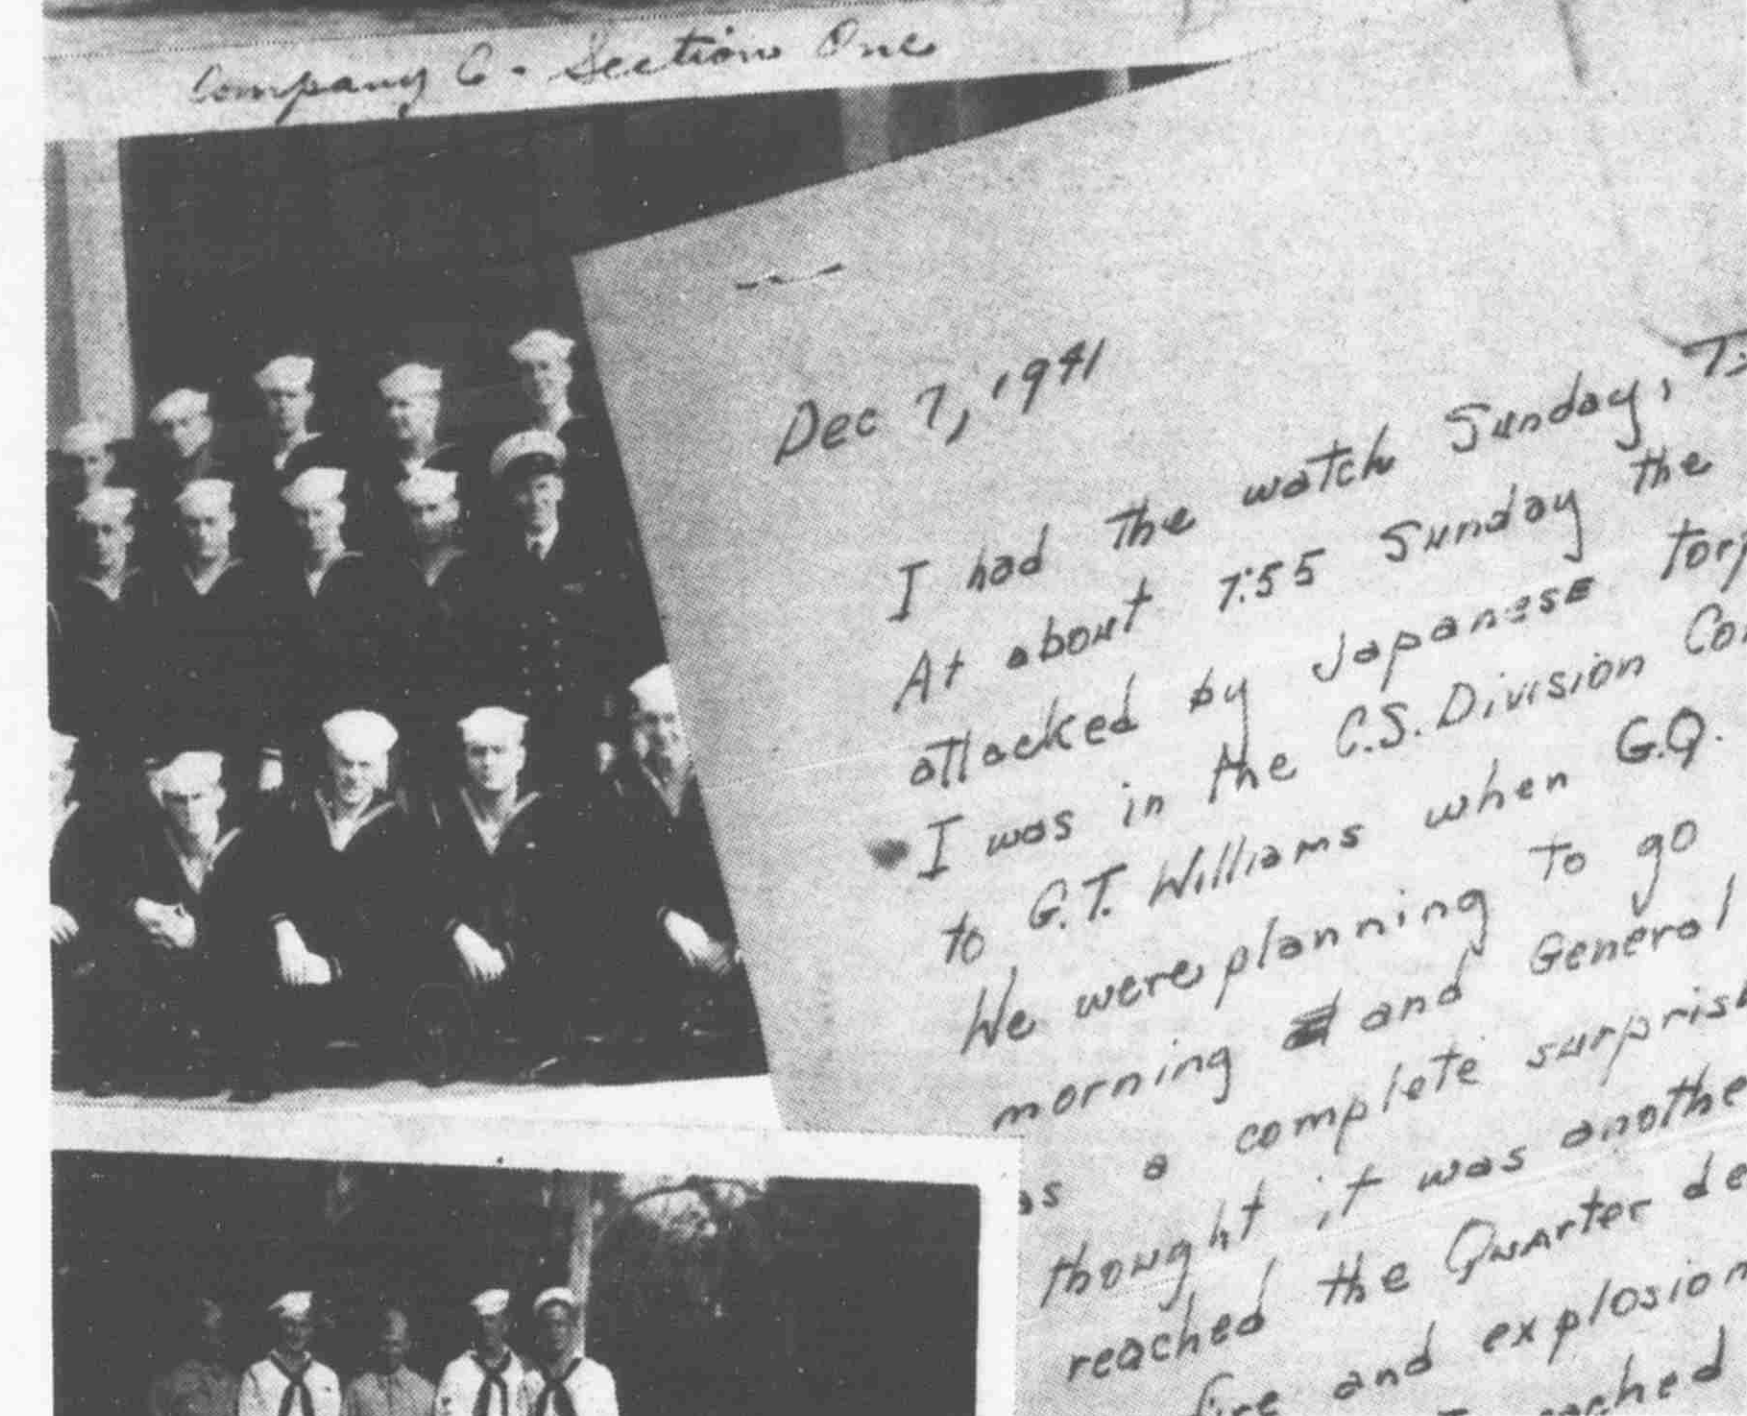 Company C - Section One
Dec 7, 1941
I had the watch Sunday,
At about 7:55 Sunday the
attacked by Japanese torp
I was in the C.S. Division Co
to G.T. Williams when G.Q.
We were planning to go
morning and General
as a complete surpris
thought it was anothe
reached the Quarter de
fire and explosion
reached